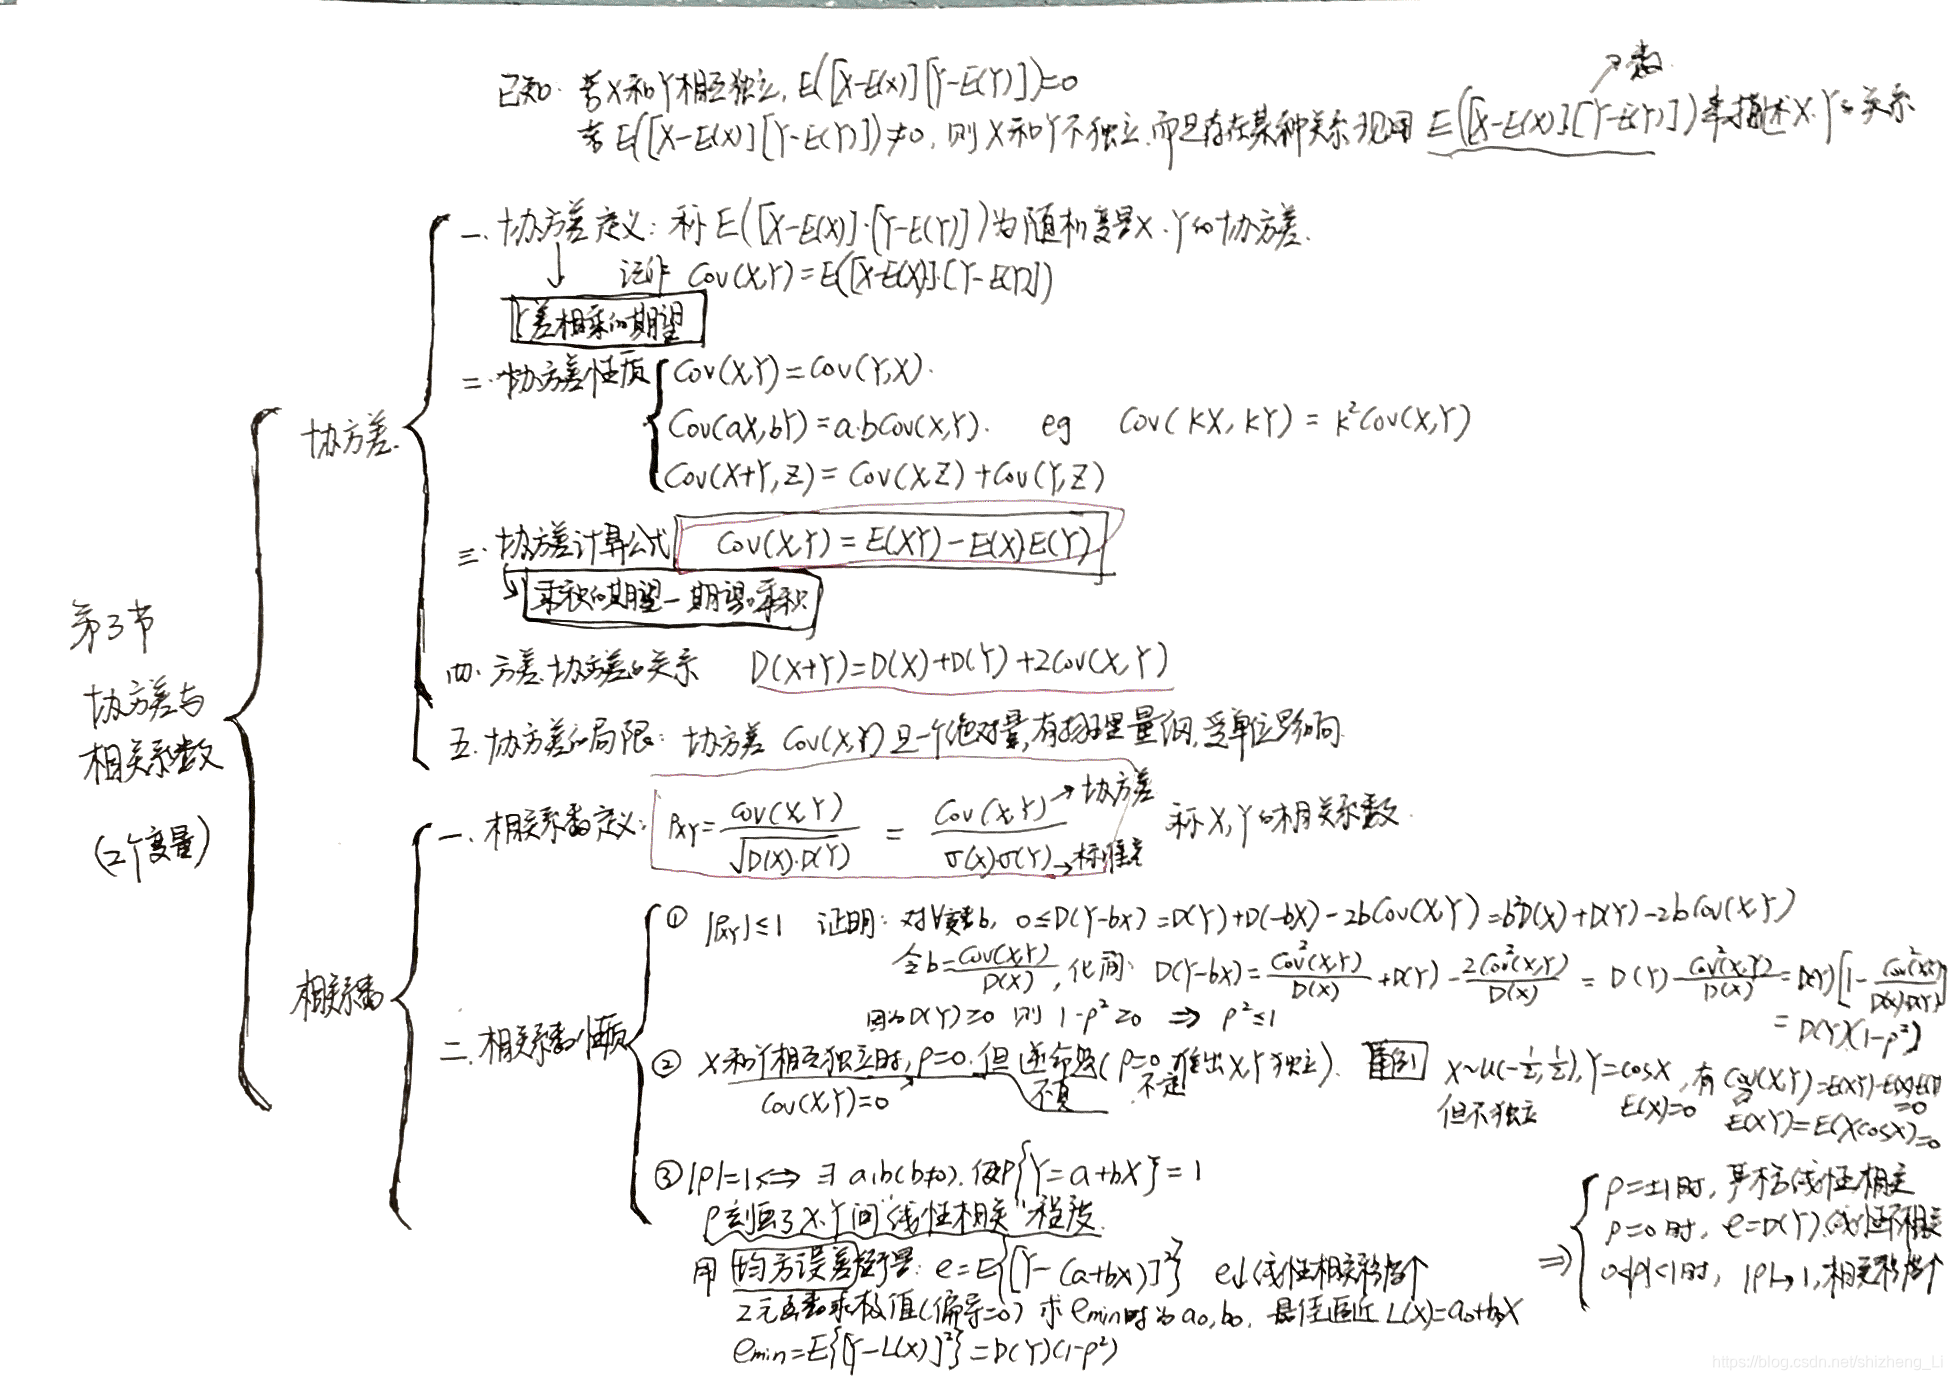 →数
已知: 若X和Y相互独立, E([X-E(X)][Y-E(Y)])=0
若E([X-E(X)][Y-E(Y)])≠0, 则X和Y不独立,而且存在某种关系 现用 E([X-E(X)][Y-E(Y)])来描述X.Y的关系
第3节
协方差与
相关系数
(2个变量)
协方差.
一. 协方差定义: 称E([X-E(X)]·[Y-E(Y)])为随机变量X.Y的协方差.
↓ 记作 Cov(X,Y)=E([X-E(X)]·[Y-E(Y)])
差相乘的期望
二. 协方差性质 Cov(X,Y)=Cov(Y,X).
Cov(aX,bY)=a·bCov(X,Y). eg Cov(kX, kY) = k²Cov(X,Y)
Cov(X+Y,Z)= Cov(X,Z)+Cov(Y,Z)
三. 协方差计算公式 Cov(X,Y)=E(XY)-E(X)E(Y)
↳ 乘积的期望-期望的乘积
四. 方差.协方差的关系 D(X+Y)=D(X)+D(Y)+2Cov(X,Y)
五. 协方差的局限: 协方差 Cov(X,Y)是一个绝对量,有物理量纲,受单位影响.
相关系数
一. 相关系数定义: ρxy = Cov(X,Y)/√D(X)·D(Y) = Cov(X,Y)/σ(X)σ(Y) →协方差 →标准差 称X,Y的相关系数.
二. 相关系数性质
① |ρxy|≤1 证明: 对∀实数b, 0≤D(Y-bX)=D(Y)+D(-bX)-2bCov(X,Y)=b²D(X)+D(Y)-2bCov(X,Y)
令b=Cov(X,Y)/D(X), 化简: D(Y-bX)=Cov²(X,Y)/D(X)+D(Y)-2Cov²(X,Y)/D(X) = D(Y)-Cov²(X,Y)/D(X)=D(Y)[1-Cov²(X,Y)/D(X)D(Y)]
因为D(Y)≥0 则 1-ρ²≥0 ⇒ ρ²≤1 =D(Y)(1-ρ²)
② X和Y相互独立时, ρ=0. 但逆命题(ρ=0 推出X,Y独立). X~U(-1/2,1/2),Y=cosX, 有Cov(X,Y)=E(XY)-E(X)E(Y)
Cov(X,Y)=0 不真 不一定 但不独立 E(X)=0 =0
E(XY)=E(XcosX)=0
③ |ρ|=1⇔∃a,b(b≠0), 使P{Y=a+bX}=1
ρ刻画了X.Y间"线性相关"程度.
用 均方误差衡量: e=E{[Y-(a+bX)]²} e↓线性相关程度↑
2元函数求极值(偏导=0) 求emin时为a₀,b₀, 最佳逼近L(X)=a₀+b₀X
emin=E{[Y-L(X)]²}=D(Y)(1-ρ²)
⇒ ρ=±1时, 严格线性相关
ρ=0时, e=D(Y).线性不相关
0<|ρ|<1时, |ρ|→1,相关程度↑
https://blog.csdn.net/shizheng_Li